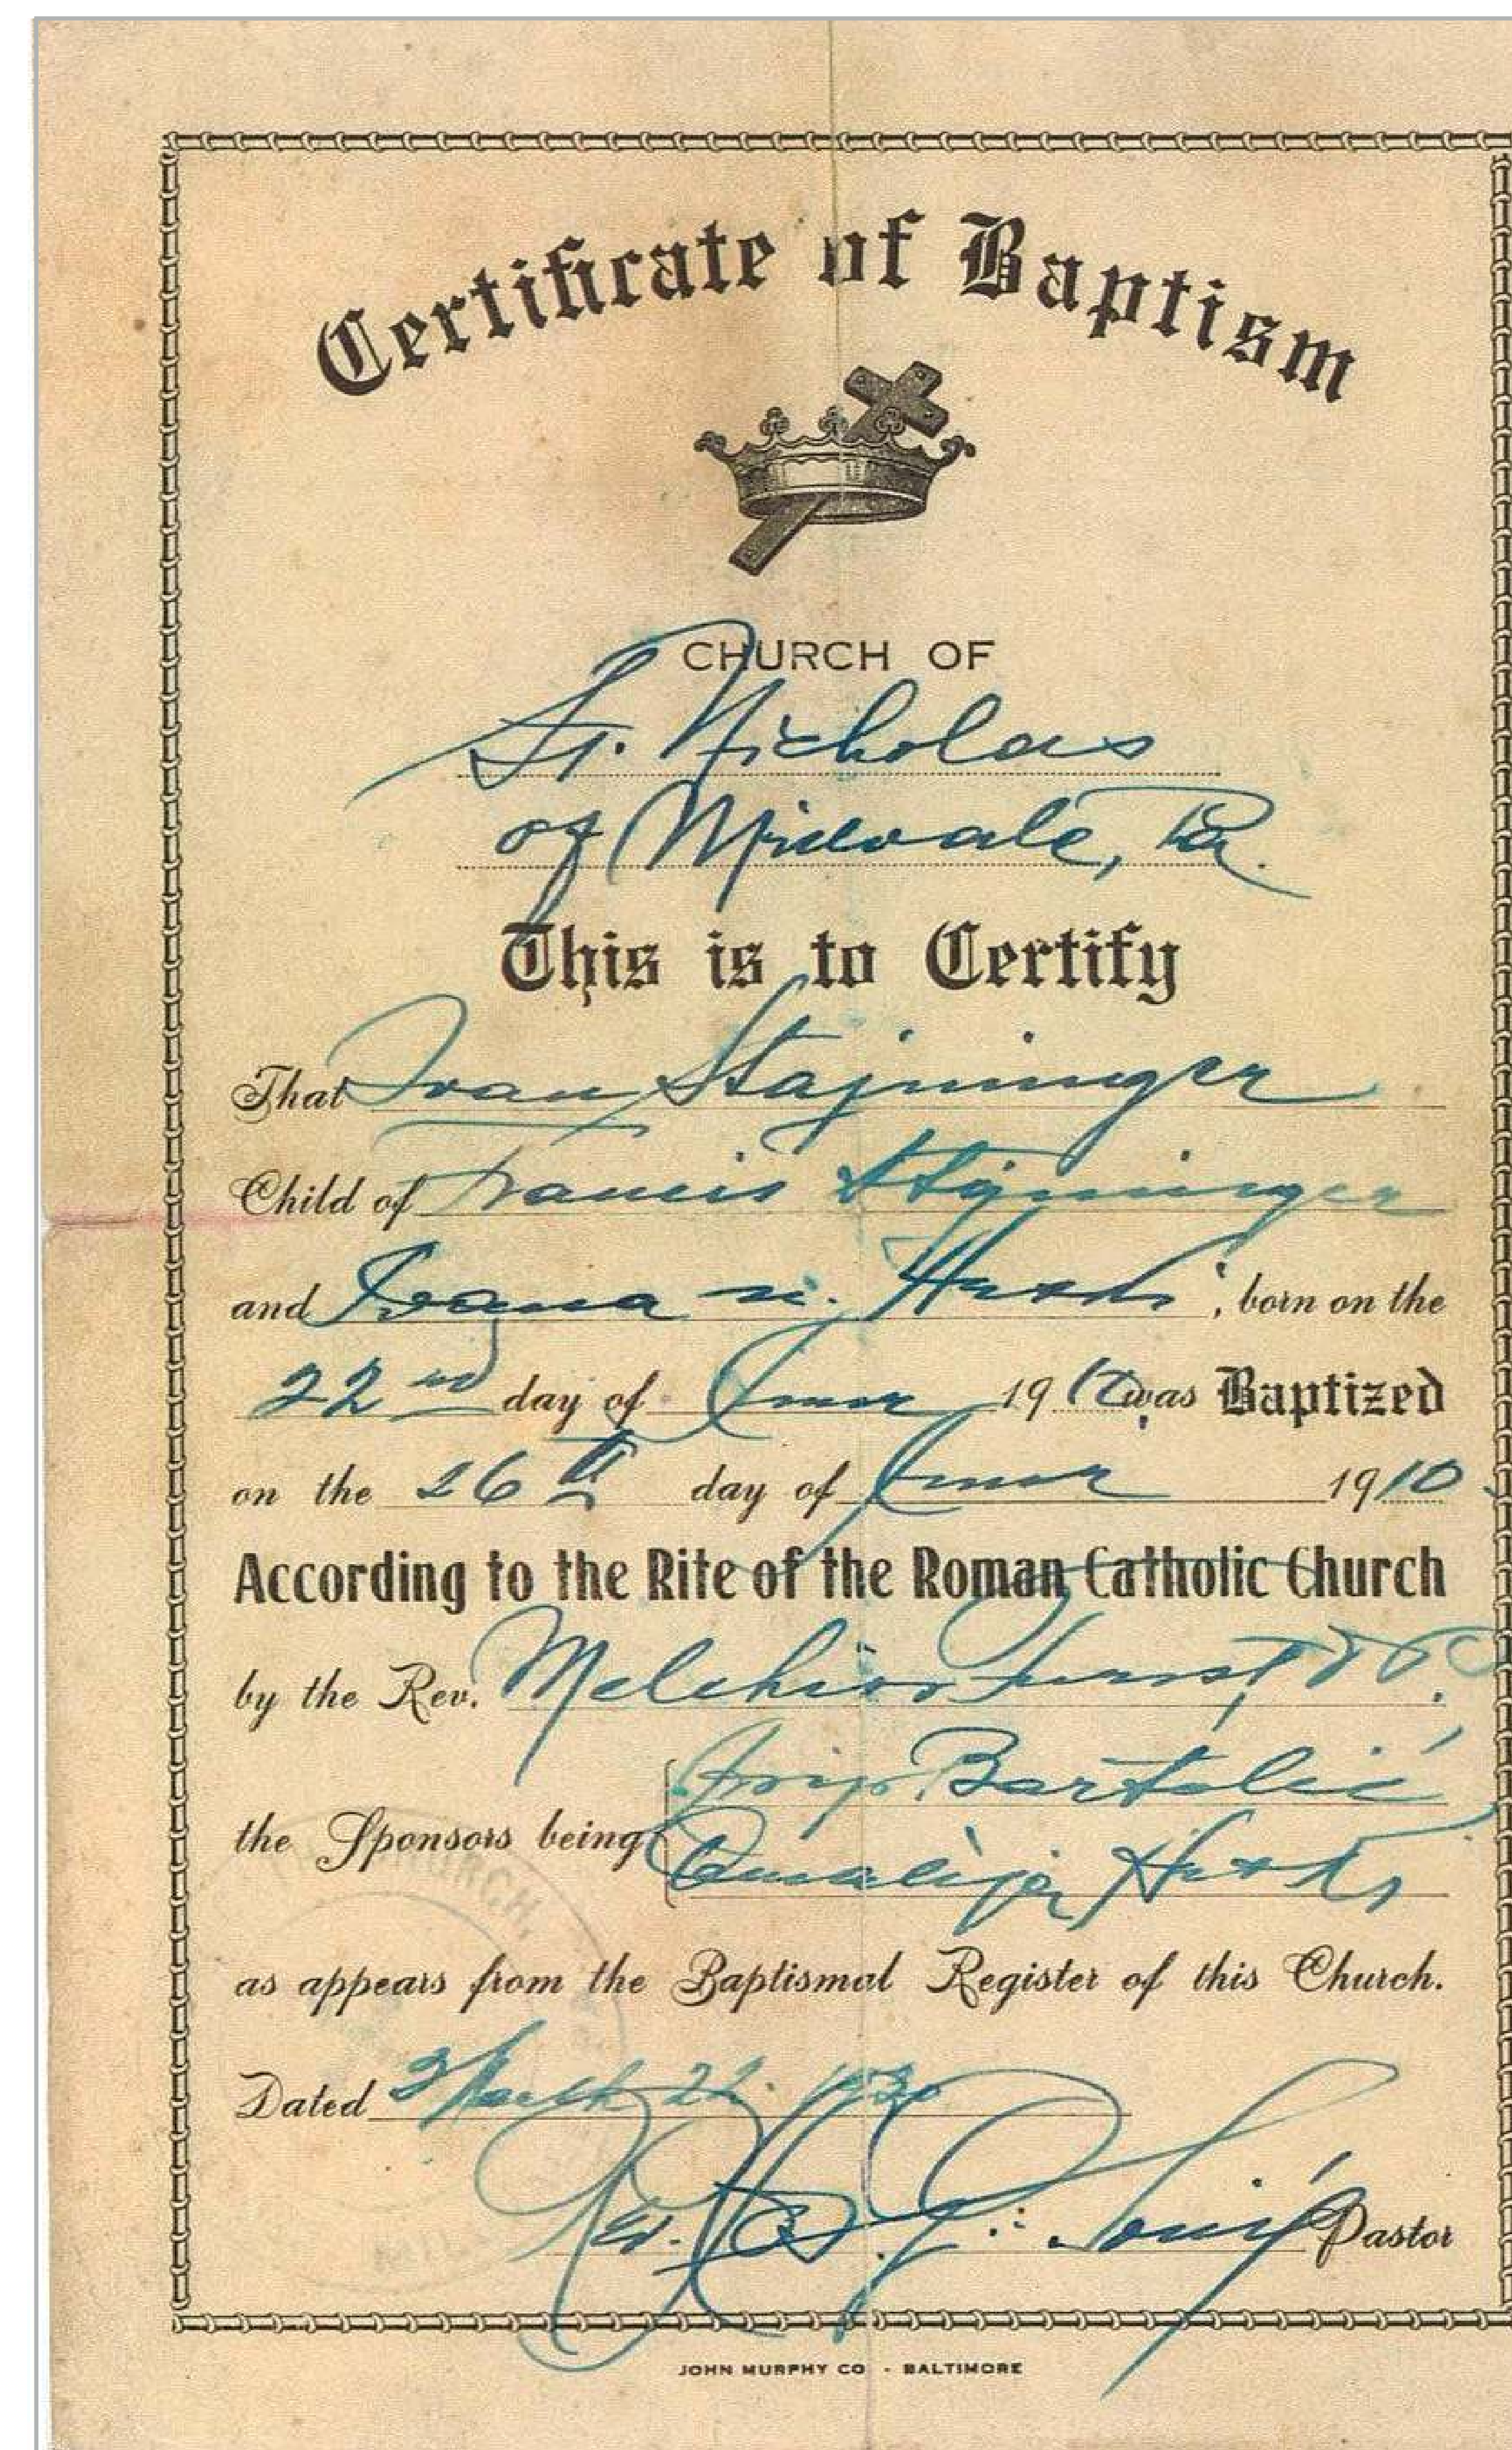 Certificate of Baptism
CHURCH OF
St. Nicholas
of Millvale, Pa.
This is to Certify
That Ivan Stajninger
Child of Francis Stajninger
and Ivana n. , born on the
22nd day of June 1910 was Baptized
on the 26th day of June 1910
According to the Rite of the Roman Catholic Church
by the Rev. Melchior
Josip Bartolić
the Sponsors being
Amalija
as appears from the Baptismal Register of this Church.
Dated March
Rev. Pastor
JOHN MURPHY CO - BALTIMORE